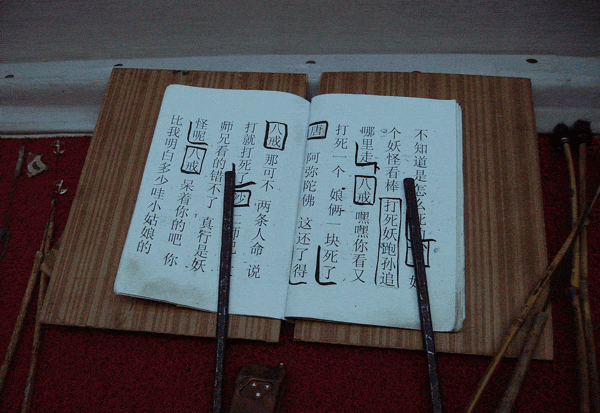 不知道是怎么死 妖
个妖怪看棒 打死妖跑孙追
哪里走 八戒 嘿嘿你看又
打死一个 娘俩一块死了
唐 阿弥陀佛 这还了得
八戒 那可不 两条人命 说
打就打死了 沙 师
师兄看的错不了 真行是妖
怪呢 八戒 呆着你的吧 你
比我明白多少哇小姑娘的